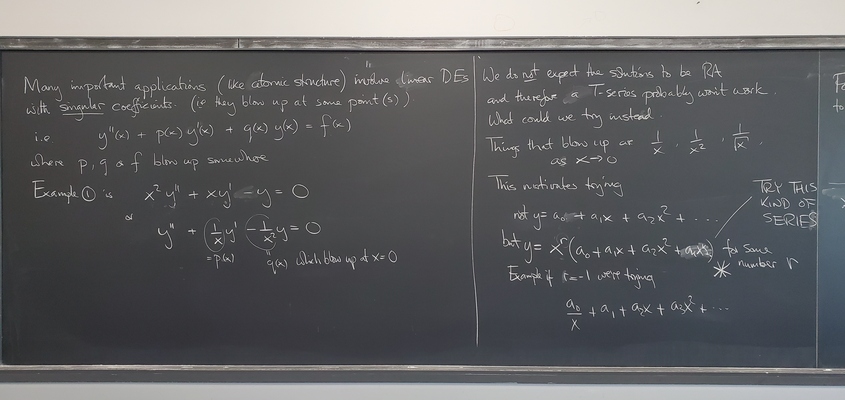 Many important applications (like atomic structure) involve linear DEs
with singular coefficients. (ie they blow up at some point(s))
i.e y''(x) + p(x) y'(x) + q(x) y(x) = f(x)
where p, q & f blow up somewhere
Example ① is x² y'' + xy' - y = 0
or
y'' + (1/x) y' - (1/x²) y = 0
= p(x) " q(x) which blow up at x=0
We do not expect the solutions to be RA
and therefore a T-series probably won't work.
What could we try instead.
Things that blow up are 1/x , 1/x² , 1/√x ,
as x→0
This motivates trying
not y = a₀ + a₁x + a₂x² + ...
but y = x^r (a₀ + a₁x + a₂x² + ) for some
number r
Example if r=-1 we're trying
a₀/x + a₁ + a₂x + a₃x² + ...
TRY THIS
KIND OF
SERIES
*
to